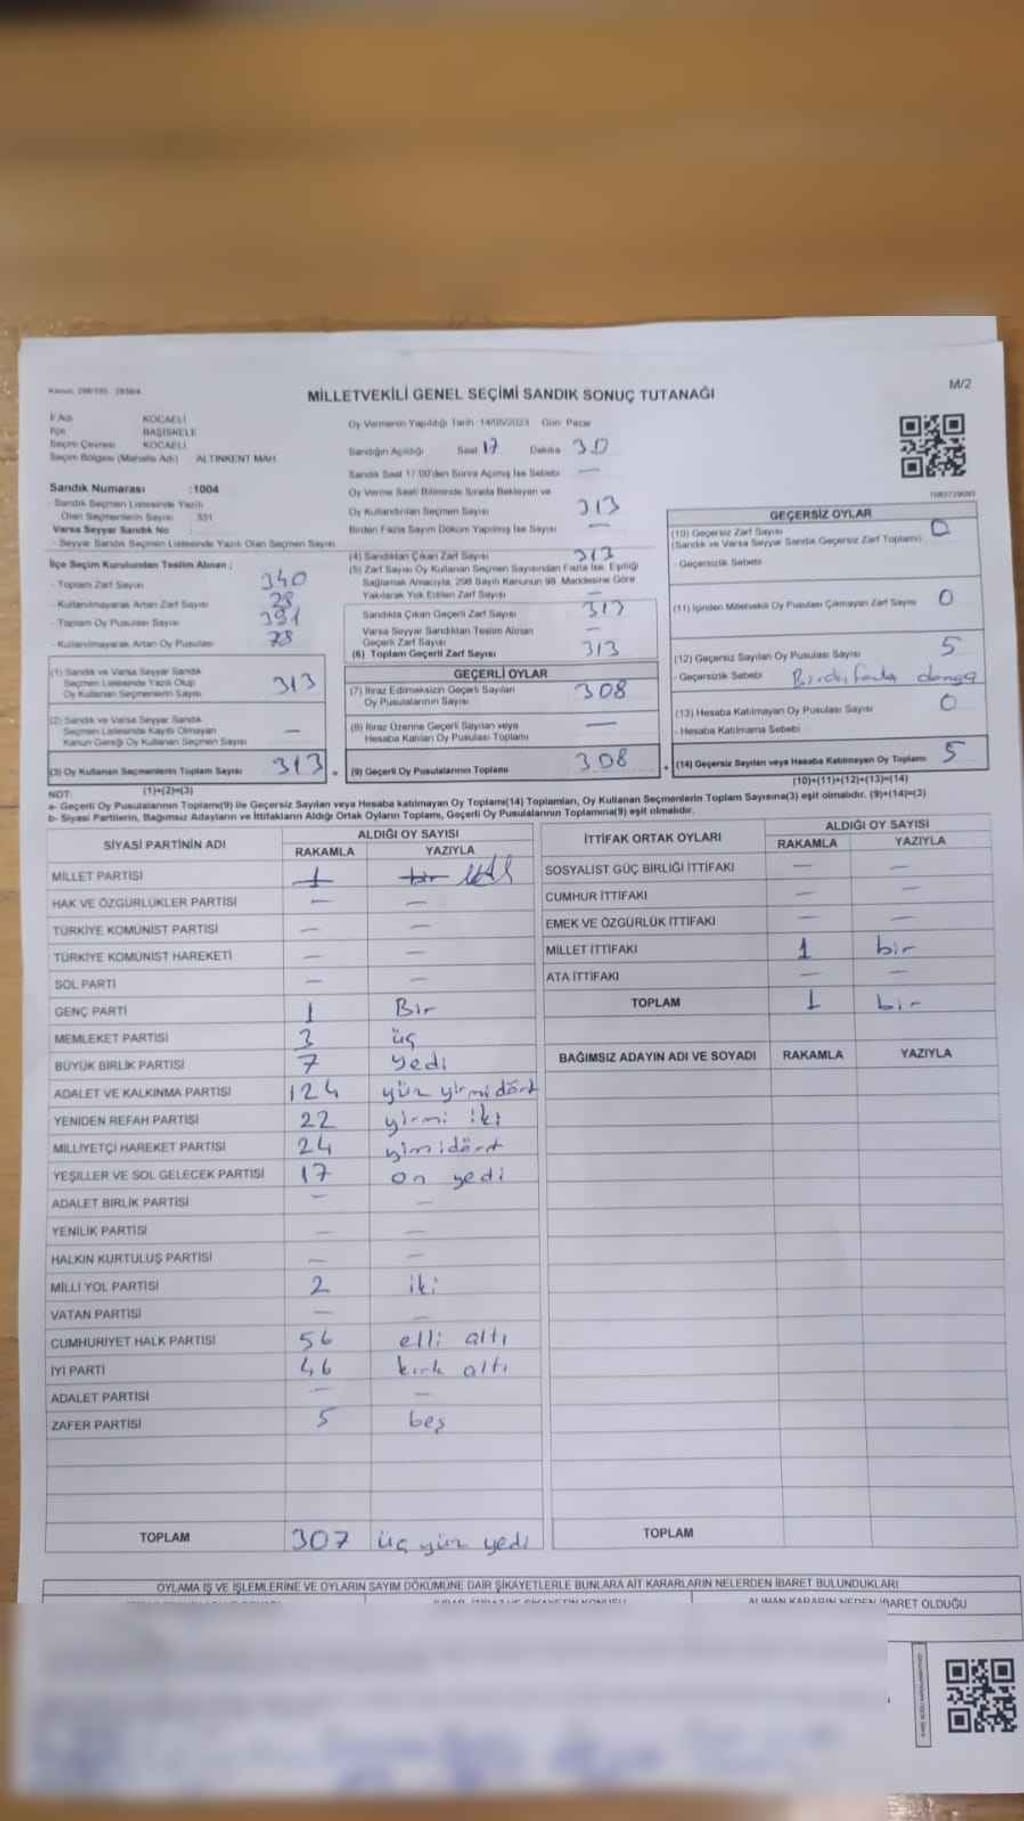 MİLLETVEKİLİ GENEL SEÇİMİ SANDIK SONUÇ TUTANAĞI
M/2
İl Adı KOCAELİ
İlçe BAŞİSKELE
Seçim Çevresi KOCAELİ
Seçim Bölgesi (Mahalle Adı) ALTINKENT MAH.
Sandık Numarası :1004
Sandık Seçmen Listesinde Yazılı
Olan Seçmenlerin Sayısı 331
Varsa Seyyar Sandık No
- Seyyar Sandık Seçmen Listesinde Yazılı Olan Seçmen Sayısı
İlçe Seçim Kurulundan Teslim Alınan ;
- Toplam Zarf Sayısı 340
- Kullanılmayarak Artan Zarf Sayısı 28
- Toplam Oy Pusulası Sayısı 391
- Kullanılmayarak Artan Oy Pusulası 78
(1) Sandık ve Varsa Seyyar Sandık
Seçmen Listesinde Yazılı Olup
Oy Kullanan Seçmenlerin Sayısı 313
(2) Sandık ve Varsa Seyyar Sandık
Seçmen Listesinde Kayıtlı Olmayan
Kanun Gereği Oy Kullanan Seçmen Sayısı —
(3) Oy Kullanan Seçmenlerin Toplam Sayısı 313
(1)+(2)=(3)
Oy Vermenin Yapıldığı Tarih 14/05/2023 Gün Pazar
Sandığın Açıldığı Saat 17 Dakika 30
Sandık Saat 17.00'den Sonra Açılmış İse Sebebi —
Oy Verme Saati Bitiminde Sırada Bekleyen ve
Oy Kullandırılan Seçmen Sayısı 313
Birden Fazla Sayım Döküm Yapılmış İse Sayısı —
(4) Sandıktan Çıkan Zarf Sayısı 313
(5) Zarf Sayısı Oy Kullanan Seçmen Sayısından Fazla İse, Eşitliği
Sağlamak Amacıyla, 298 Sayılı Kanunun 98. Maddesine Göre
Yakılarak Yok Edilen Zarf Sayısı —
Sandıkta Çıkan Geçerli Zarf Sayısı 313
Varsa Seyyar Sandıktan Teslim Alınan
Geçerli Zarf Sayısı —
(6) Toplam Geçerli Zarf Sayısı 313
GEÇERLİ OYLAR
(7) İtiraz Edilmeksizin Geçerli Sayılan
Oy Pusulalarının Sayısı 308
(8) İtiraz Üzerine Geçerli Sayılan veya
Hesaba Katılan Oy Pusulası Toplamı —
(9) Geçerli Oy Pusulalarının Toplamı 308
GEÇERSİZ OYLAR
(10) Geçersiz Zarf Sayısı
(Sandık ve Varsa Seyyar Sandık Geçersiz Zarf Toplamı) 0
- Geçersizlik Sebebi
(11) İçinden Milletvekili Oy Pusulası Çıkmayan Zarf Sayısı 0
(12) Geçersiz Sayılan Oy Pusulası Sayısı 5
- Geçersizlik Sebebi
(13) Hesaba Katılmayan Oy Pusulası Sayısı 0
- Hesaba Katılmama Sebebi
(14) Geçersiz Sayılan veya Hesaba Katılmayan Oy Toplamı 5
(10)+(11)+(12)+(13)=(14)
NOT:
a- Geçerli Oy Pusulalarının Toplamı(9) ile Geçersiz Sayılan veya Hesaba katılmayan Oy Toplamı(14) Toplamları, Oy Kullanan Seçmenlerin Toplam Sayısına(3) eşit olmalıdır. (9)+(14)=(3)
b- Siyasi Partilerin, Bağımsız Adayların ve İttifakların Aldığı Ortak Oyların Toplamı, Geçerli Oy Pusulalarının Toplamına(9) eşit olmalıdır.
SİYASİ PARTİNİN ADI ALDIĞI OY SAYISI
RAKAMLA YAZIYLA
MİLLET PARTİSİ 1 bir
HAK VE ÖZGÜRLÜKLER PARTİSİ — —
TÜRKİYE KOMÜNİST PARTİSİ — —
TÜRKİYE KOMÜNİST HAREKETİ — —
SOL PARTİ — —
GENÇ PARTİ 1 Bir
MEMLEKET PARTİSİ 3 üç
BÜYÜK BİRLİK PARTİSİ 7 yedi
ADALET VE KALKINMA PARTİSİ 124 yüz yirmidört
YENİDEN REFAH PARTİSİ 22 yirmi iki
MİLLİYETÇİ HAREKET PARTİSİ 24 yimidört
YEŞİLLER VE SOL GELECEK PARTİSİ 17 on yedi
ADALET BİRLİK PARTİSİ — —
YENİLİK PARTİSİ — —
HALKIN KURTULUŞ PARTİSİ — —
MİLLİ YOL PARTİSİ 2 iki
VATAN PARTİSİ — —
CUMHURİYET HALK PARTİSİ 56 elli altı
İYİ PARTİ 46 kırk altı
ADALET PARTİSİ — —
ZAFER PARTİSİ 5 beş
TOPLAM 307 üç yüz yedi
İTTİFAK ORTAK OYLARI ALDIĞI OY SAYISI
RAKAMLA YAZIYLA
SOSYALİST GÜÇ BİRLİĞİ İTTİFAKI — —
CUMHUR İTTİFAKI — —
EMEK VE ÖZGÜRLÜK İTTİFAKI — —
MİLLET İTTİFAKI 1 bir
ATA İTTİFAKI — —
TOPLAM 1 bir
BAĞIMSIZ ADAYIN ADI VE SOYADI RAKAMLA YAZIYLA
TOPLAM
OYLAMA İŞ VE İŞLEMLERİNE VE OYLARIN SAYIM DÖKÜMÜNE DAİR ŞİKAYETLERLE BUNLARA AİT KARARLARIN NELERDEN İBARET BULUNDUKLARI
ALINAN KARARIN NEDEN İBARET OLDUĞU